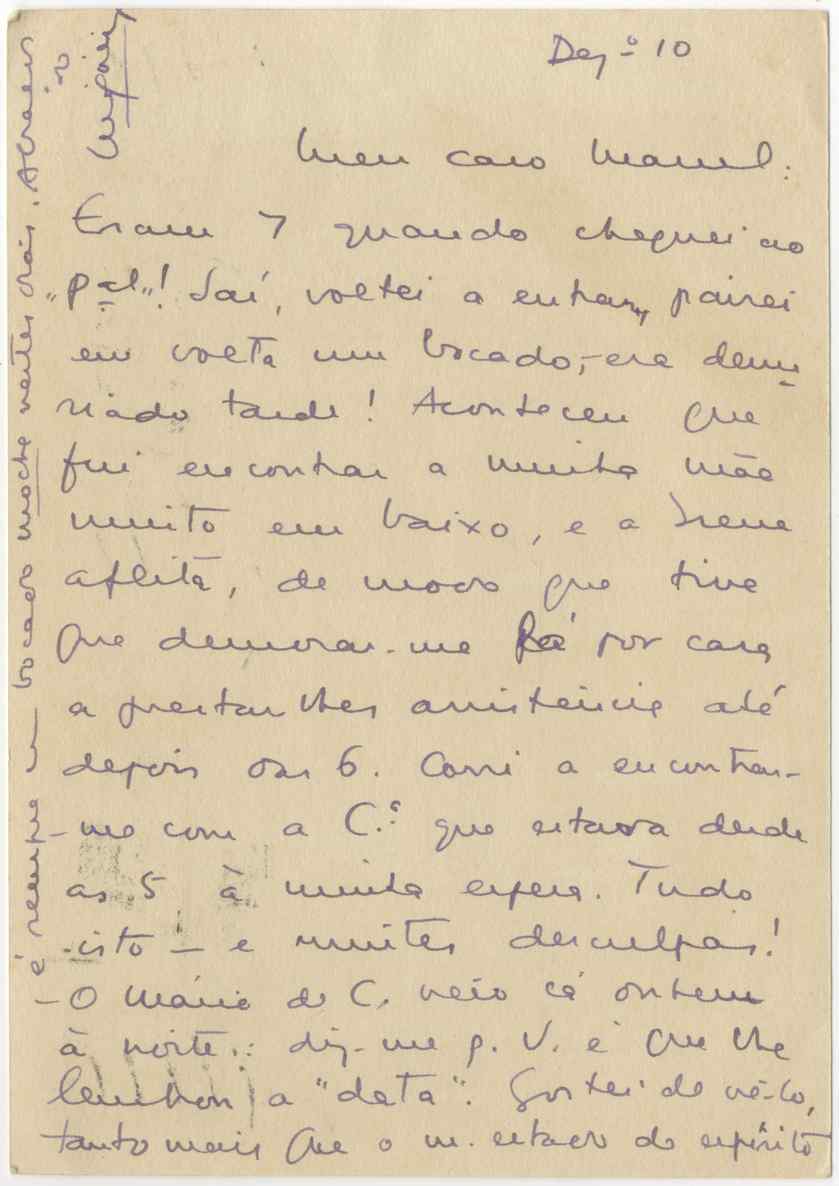 Dezº 10
Meu caro Manuel:
Eram 7 quando cheguei ao
"Pal"! Saí, voltei a entrar, pairei
em volta um bocado, - era dema-
siado tarde! Aconteceu que
fui encontrar a minha mãe
muito em baixo, e a Irene
aflita, de modo que tive
que demorar-me lá por casa
a prestar lhes assistência até
depois das 6. Corri a encontrar-
-me com a C.ª que estava desde
as 5 à minha espera. Tudo
isto — e muitas desculpas!
- O Mário de C. veio cá ontem
à noite: diz-me q. V. é que lhe
lembrou a "data". Gostei de vê-lo,
tanto mais que o m. estado de espírito
é sempre um bocado moche nestes dias. Abraços
do
Miguéis